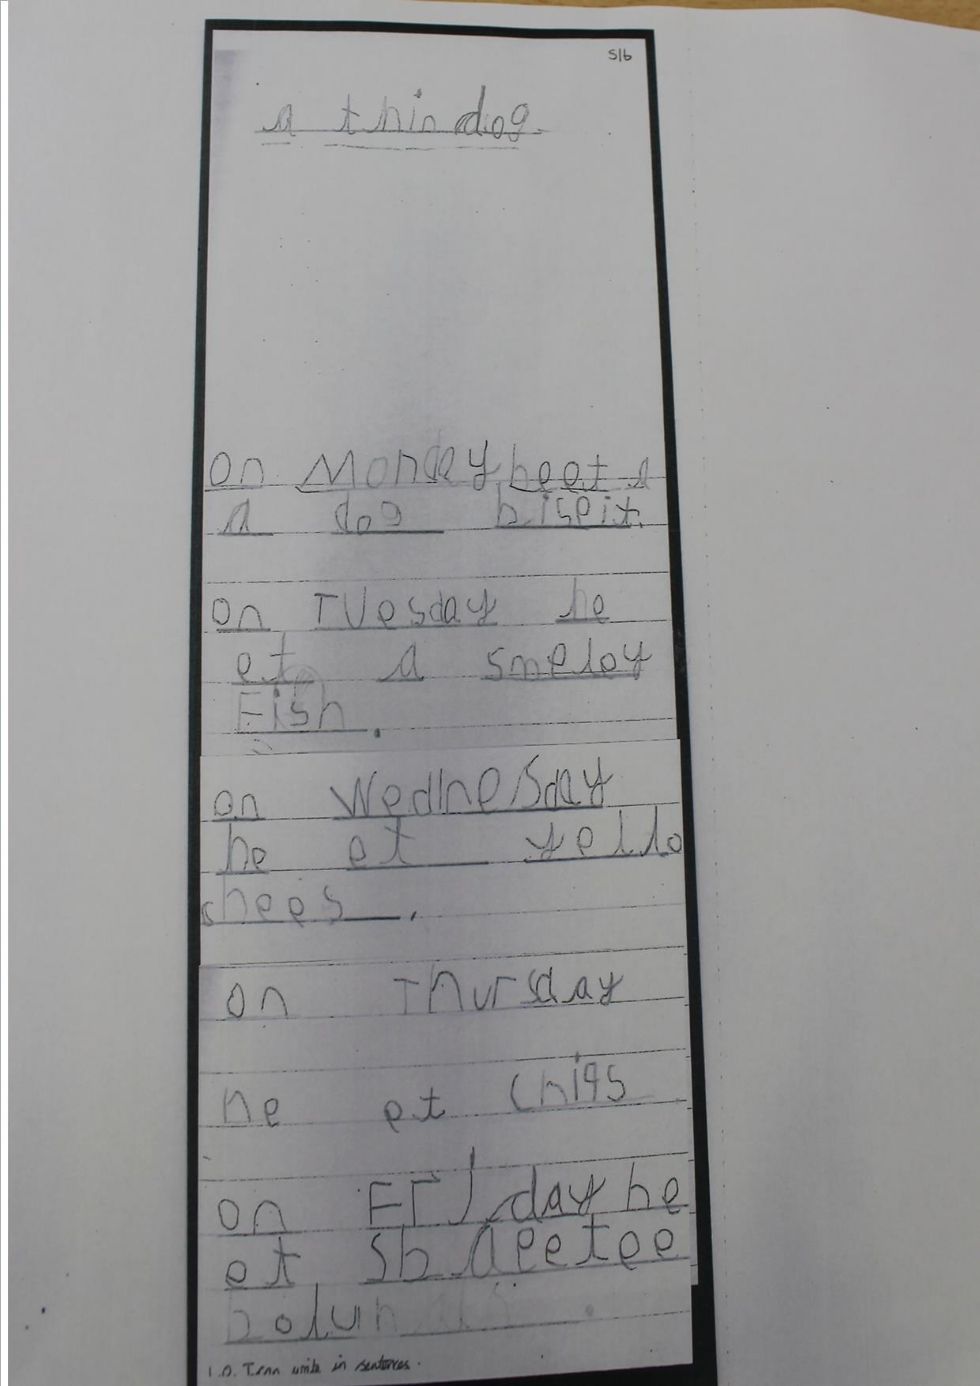 S/b
a thin dog.
on Monday heet a
a dog biscit.
on Tuesday he
et a smeloy
Fish.
on Wednesday
he et yello
chees.
on Thursday
he et Chips
on Friday he
et
L.O. I can write in sentences.